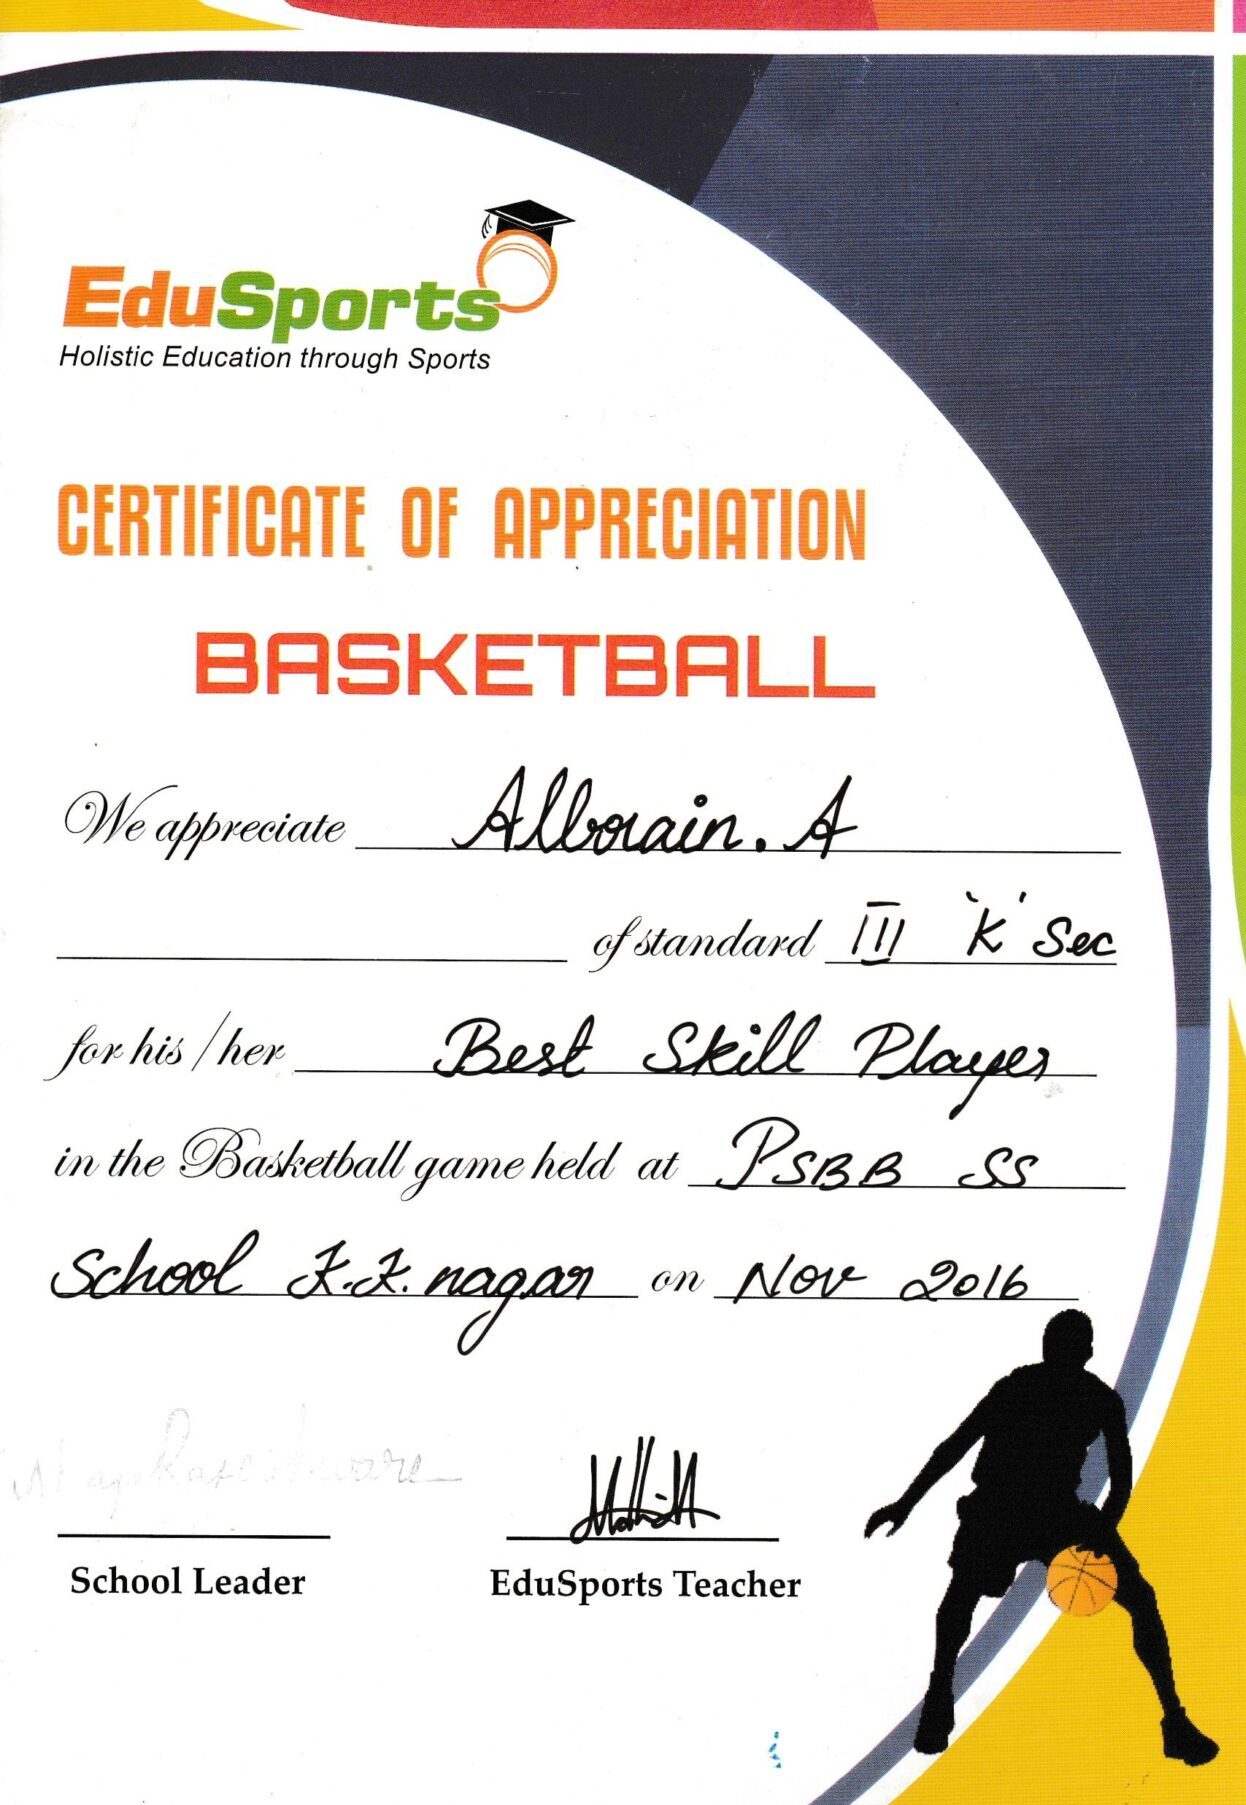 EduSports
Holistic Education through Sports
CERTIFICATE OF APPRECIATION
BASKETBALL
We appreciate Alborain. A
of standard III 'K' Sec
for his / her Best Skill Player
in the Basketball game held at PSBB SS
School K.K. nagar on Nov 2016
School Leader
EduSports Teacher